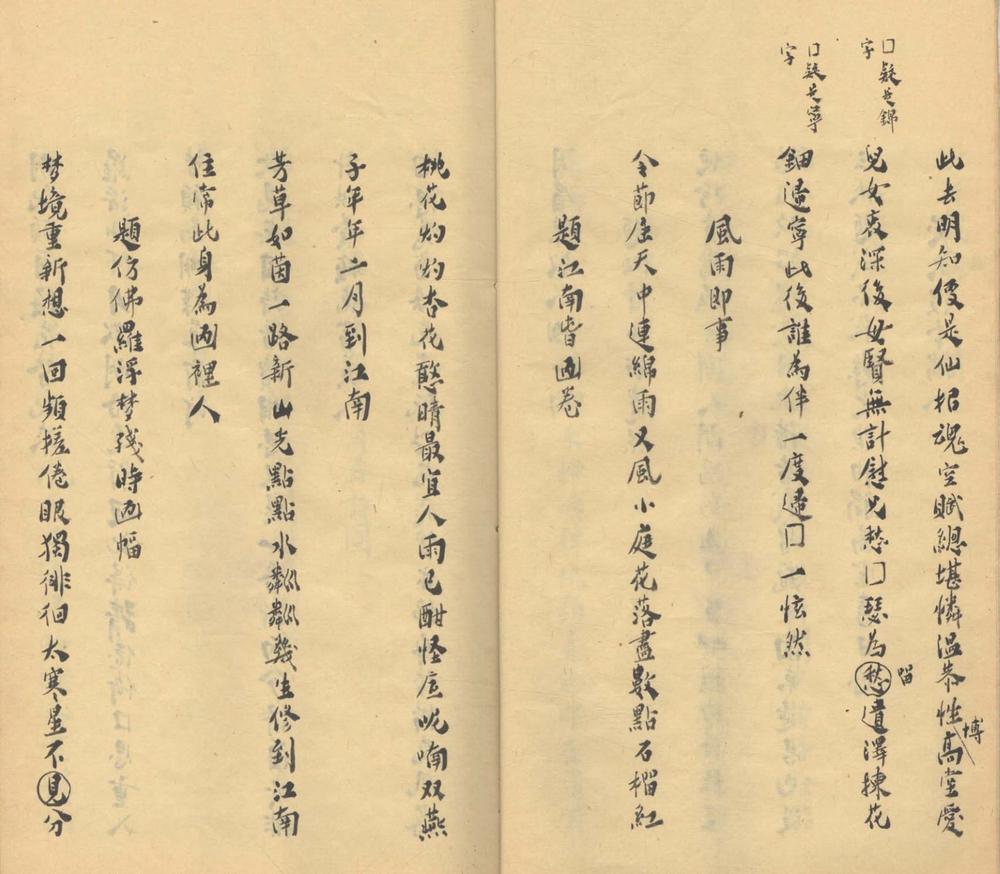 此去明知便是仙招魂空賦總堪憐溫恭性博高堂愛
兒女哀深後母賢無計慰兄愁□瑟為愁留遺澤揀花
鈿適寧此後誰為伴一度適□一怯然
□疑是錦
字
□疑是寧
字
風雨即事
令節居天中連綿雨又風小庭花落盡數點石榴紅
題江南皆画卷
桃花灼灼杏花憨晴最宜人雨已酣怪底呢喃双燕
子年年二月到江南
芳草如茵一路新山光點點水粼粼幾生修到江南
住常此身為画裡人
題仿佛羅浮梦殘時画幅
梦境重新想一回頻搓倦眼獨徘徊太寒星不見分